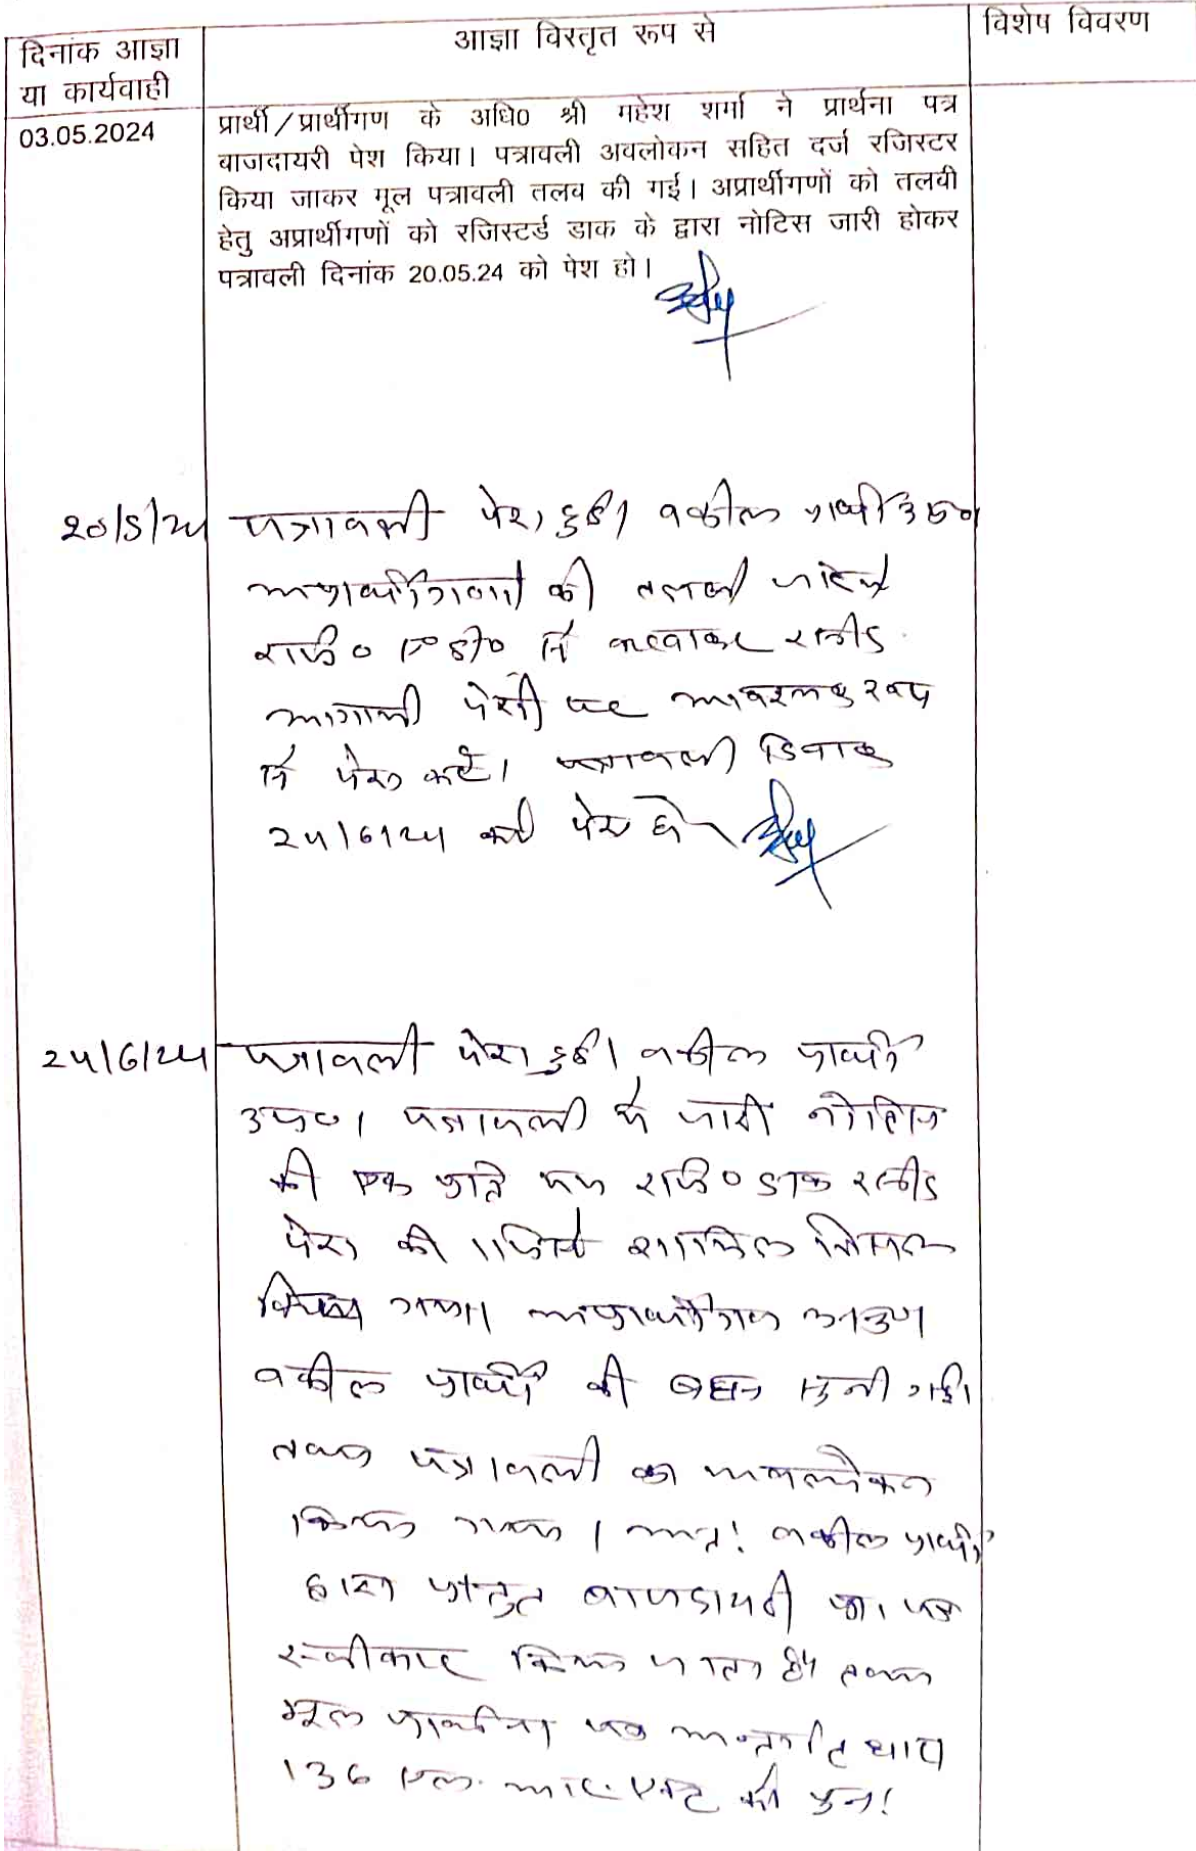 दिनांक आज्ञा या कार्यवाही
आज्ञा विस्तृत रूप से
विशेष विवरण
03.05.2024
प्रार्थी/प्रार्थीगण के अधि० श्री महेश शर्मा ने प्रार्थना पत्र
बाजदायरी पेश किया। पत्रावली अवलोकन सहित दर्ज रजिस्टर
किया जाकर मूल पत्रावली तलव की गई। अप्रार्थीगणों को तलवी
हेतु अप्रार्थीगणों को रजिस्टर्ड डाक के द्वारा नोटिस जारी होकर
पत्रावली दिनांक 20.05.24 को पेश हो।
20/5/24 पत्रावली पेश हुई। वकील प्रार्थी उप०
अप्रार्थीगणों की तलबी जरिये
रजि० ए०डी० से करवाकर रसीद
आगामी पेशी पर आवश्यक रूप
से पेश करें। पत्रावली दिनांक
24/6/24 को पेश हो
24/6/24 पत्रावली पेश हुई। वकील प्रार्थी
उप०। पत्रावली में जारी नोटिस
की एक प्रति मय रजि० डाक रसीद
पेश की जिसे शामिल मिसल
किया गया। अप्रार्थीगण अनु०।
वकील प्रार्थी की बहस सुनी गई।
तथा पत्रावली का अवलोकन
किया गया। अतः वकील प्रार्थी
द्वारा प्रस्तुत बाजदायरी प्रा. पत्र
स्वीकार किया जाता है तथा
मूल प्रार्थना पत्र अन्तर्गत धारा
136 एल. आर. एक्ट को पुनः